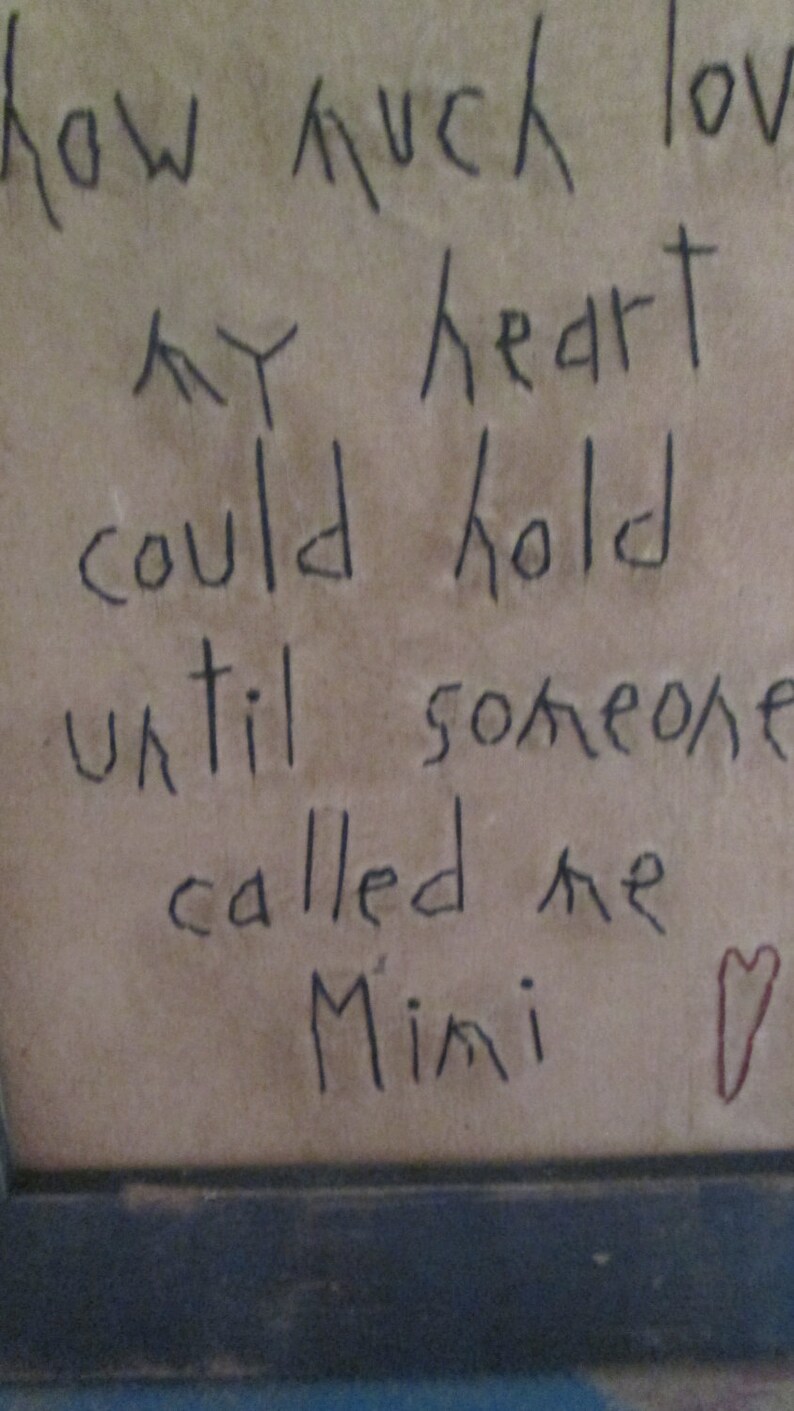 how much lov
my heart
could hold
until someone
called me
Mimi